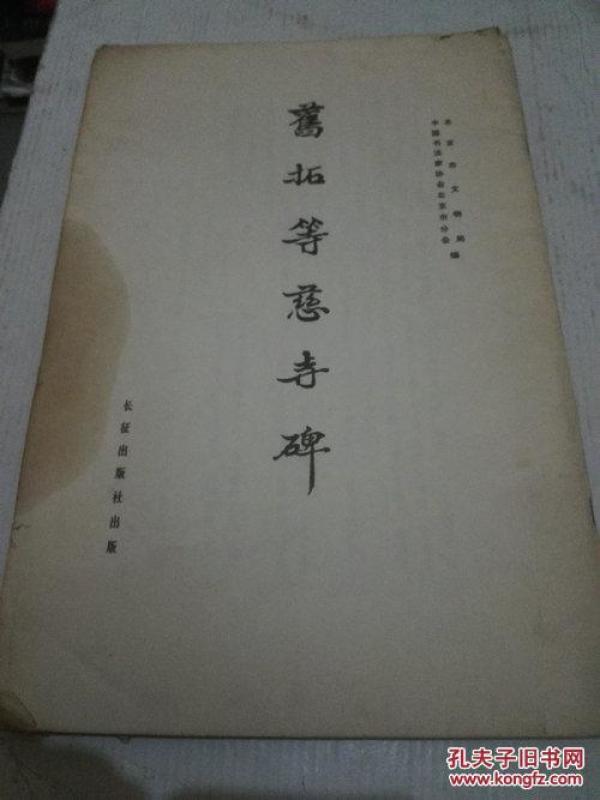 北京市文物局
中国书法家协会北京市分会
编
舊拓等慈寺碑
长征出版社出版
孔夫子旧书网
www.kongfz.com